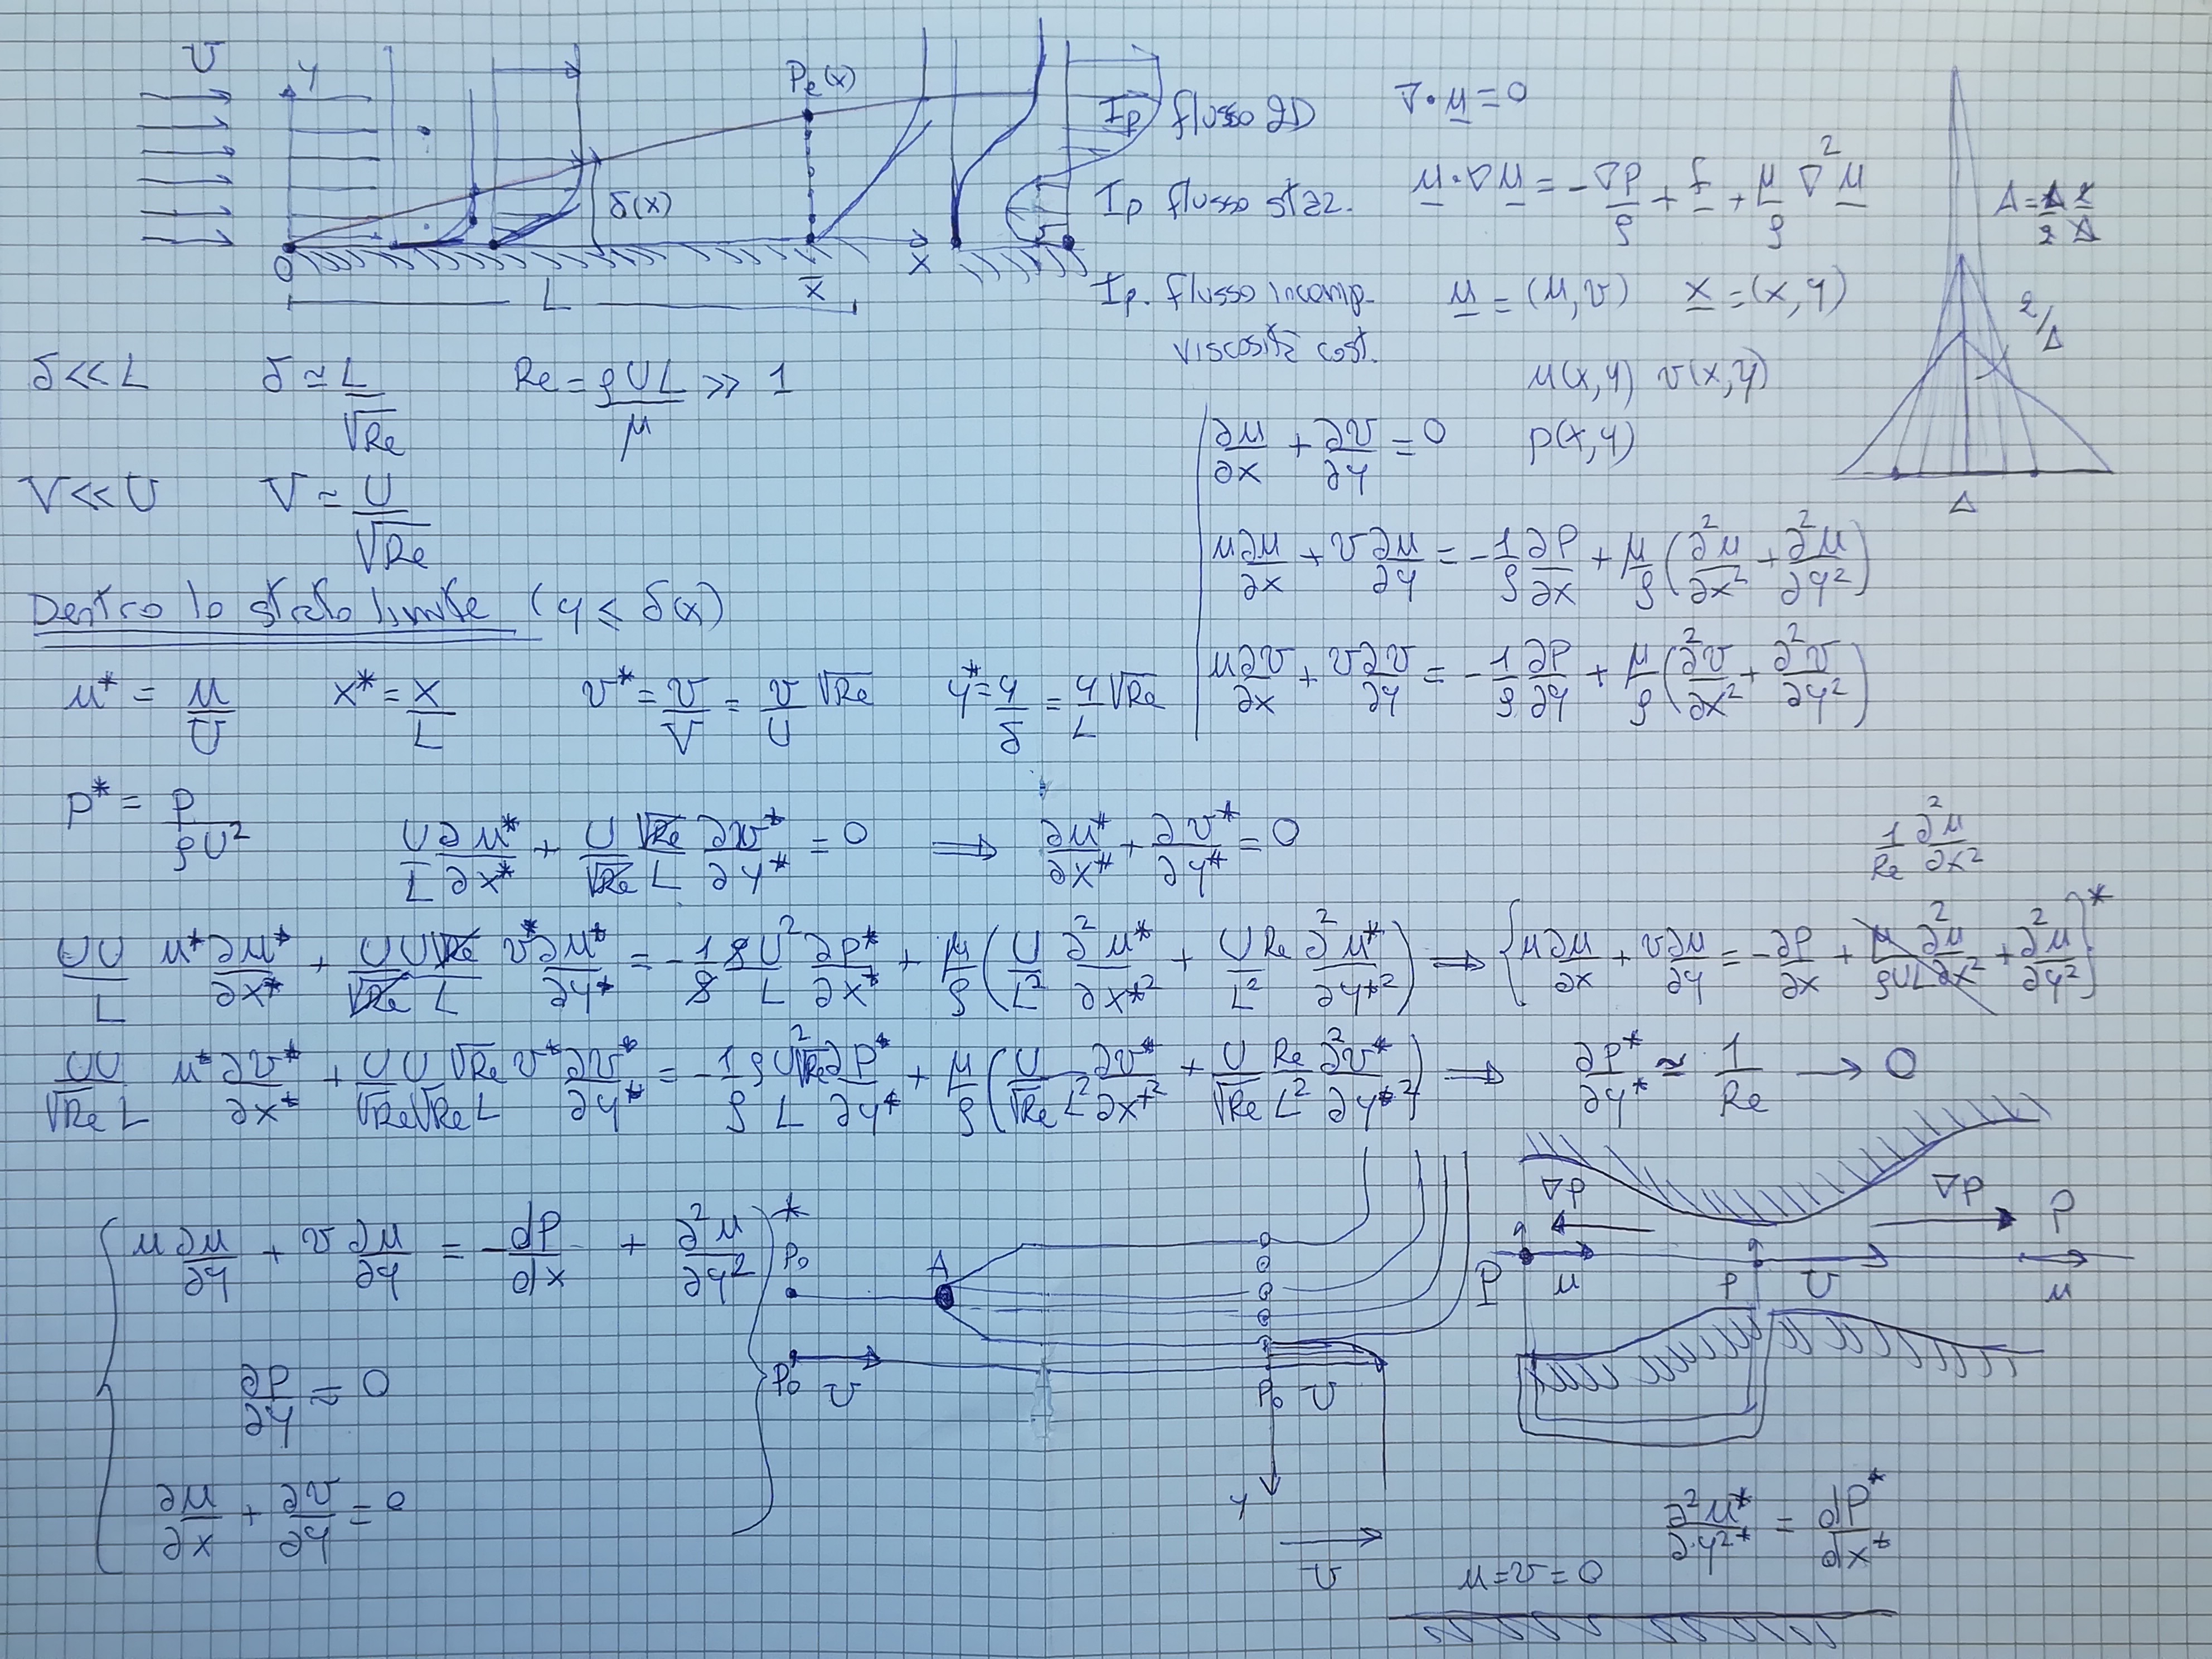 U
y
Pe(x)
δ(x)
O
x̄
x
L
Ip flusso 2D ∇·u = 0
Ip flusso staz. u·∇u = -∇P/ρ + f + μ/ρ ∇²u
Ip. flusso incomp. u = (u,v) x = (x,y)
viscosità cost.
u(x,y) v(x,y)
p(x,y)
2/Δ
Δ
δ<<L δ≃L/√Re Re = ρUL/μ >> 1
V<<U V≃U/√Re
∂u/∂x + ∂v/∂y = 0
u∂u/∂x + v∂u/∂y = -1/ρ ∂P/∂x + μ/ρ (∂²u/∂x² + ∂²u/∂y²)
u∂v/∂x + v∂v/∂y = -1/ρ ∂P/∂y + μ/ρ (∂²v/∂x² + ∂²v/∂y²)
Dentro lo strato limite (y ≤ δ(x))
u* = u/U x* = x/L v* = v/V = v/U √Re y* = y/δ = y/L √Re
P* = P/ρU²
U/L ∂u*/∂x* + U/√Re √Re/L ∂v*/∂y* = 0 ⟹ ∂u*/∂x* + ∂v*/∂y* = 0
1/Re ∂²u/∂x²
UU/L u*∂u*/∂x* + UU√Re/√Re L v*∂u*/∂y* = -1/ρ ρU²/L ∂P*/∂x* + μ/ρ (U/L² ∂²u*/∂x*² + U Re/L² ∂²u*/∂y*²) ⟹ {u∂u/∂x + v∂u/∂y = -∂P/∂x + μ/ρUL ∂²u/∂x² + ∂²u/∂y²}*
UU/√Re L u*∂v*/∂x* + UU√Re/√Re√Re L v*∂v*/∂y* = -1/ρ ρU²√Re/L ∂P*/∂y* + μ/ρ (U/√Re L² ∂v*/∂x*² + U/√Re Re/L² ∂²v*/∂y*²) ⟹ ∂P*/∂y* ≃ 1/Re → 0
{u∂u/∂y + v∂u/∂y = -dP/dx + ∂²u/∂y²}*
∂P/∂y ≃ 0
∂u/∂x + ∂v/∂y = 0
P₀
A
P₀
U
P₀ U
y
U
∇P
∇P
P
P
u
P
U
u
∂²u*/∂y²* = dP*/dx*
u=v=0